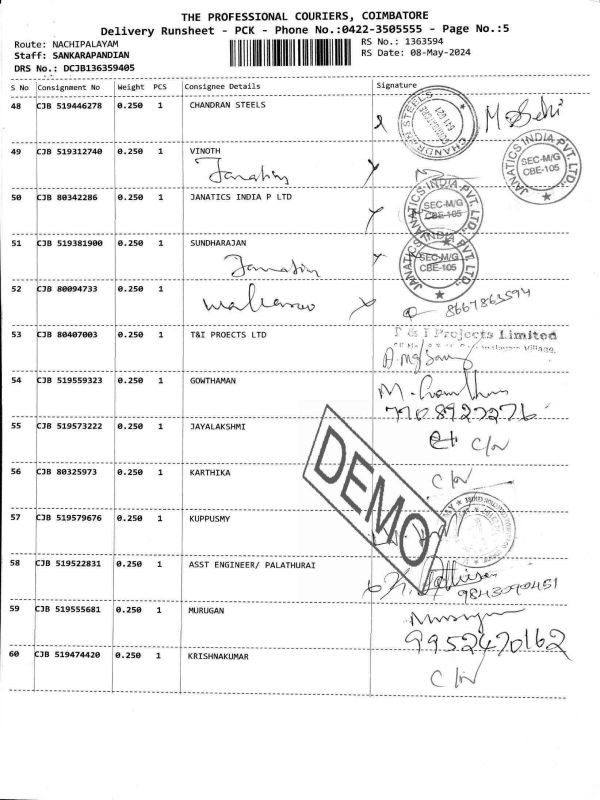 THE PROFESSIONAL COURIERS, COIMBATORE
Delivery Runsheet - PCK - Phone No.:0422-3505555 - Page No.:5
Route: NACHIPALAYAM
RS No.: 1363594
Staff: SANKARAPANDIAN
RS Date: 08-May-2024
DRS No.: DCJB136359405
S No Consignment No Weight PCS Consignee Details Signature
48 CJB 519446278 0.250 1 CHANDRAN STEELS
CHANDRAN STEELS
COIMBATORE
641 021
49 CJB 519312740 0.250 1 VINOTH
JANATICS INDIA PVT. LTD.,
SEC-M/G
CBE-105
50 CJB 80342286 0.250 1 JANATICS INDIA P LTD
JANATICS INDIA PVT. LTD.,
SEC-M/G
CBE-105
51 CJB 519381900 0.250 1 SUNDHARAJAN
JANATICS INDIA PVT. LTD.,
SEC-M/G
CBE-105
52 CJB 80094733 0.250 1
8667863594
53 CJB 80407003 0.250 1 T&I PROECTS LTD
T & I Projects Limited
Village,
54 CJB 519559323 0.250 1 GOWTHAMAN
7708923276
55 CJB 519573222 0.250 1 JAYALAKSHMI
56 CJB 80325973 0.250 1 KARTHIKA
57 CJB 519579676 0.250 1 KUPPUSMY
58 CJB 519522831 0.250 1 ASST ENGINEER/ PALATHURAI
9843090451
59 CJB 519555681 0.250 1 MURUGAN
9952470162
60 CJB 519474420 0.250 1 KRISHNAKUMAR
DEMO